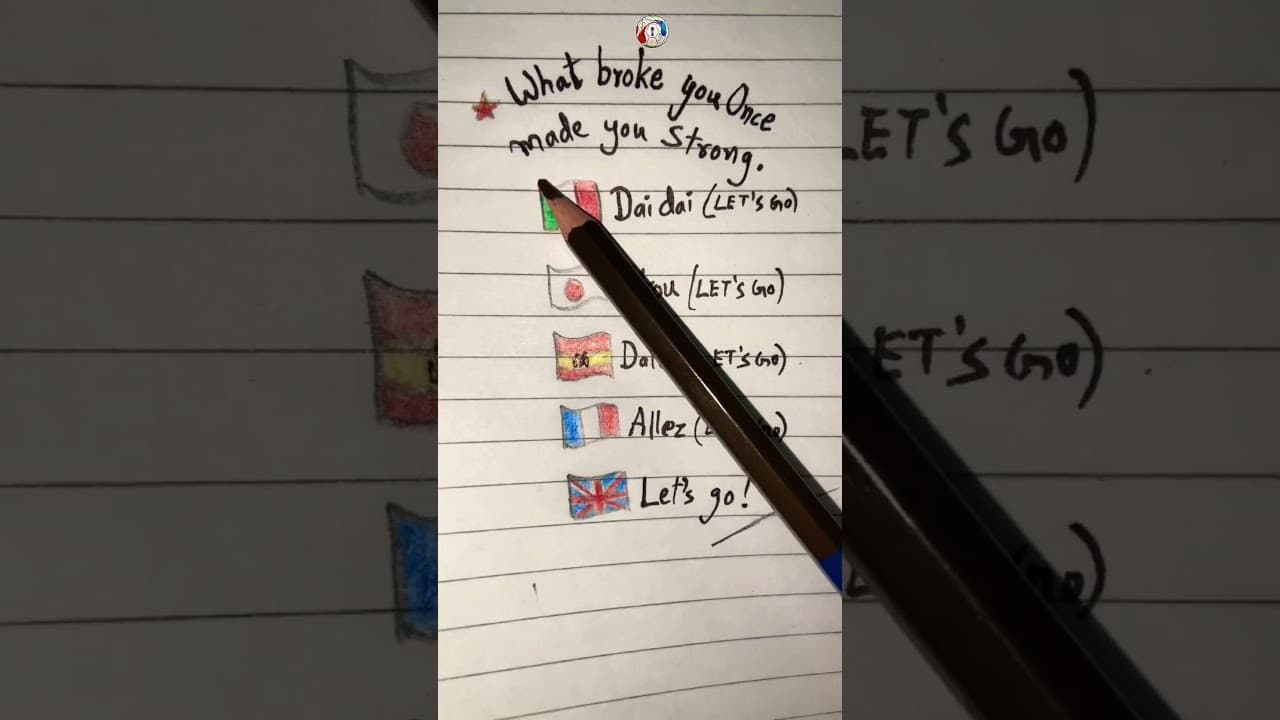 What broke you Once
made you Strong.
Dai dai (LET'S GO)
(LET'S GO)
GO)
Allez
Let's go!